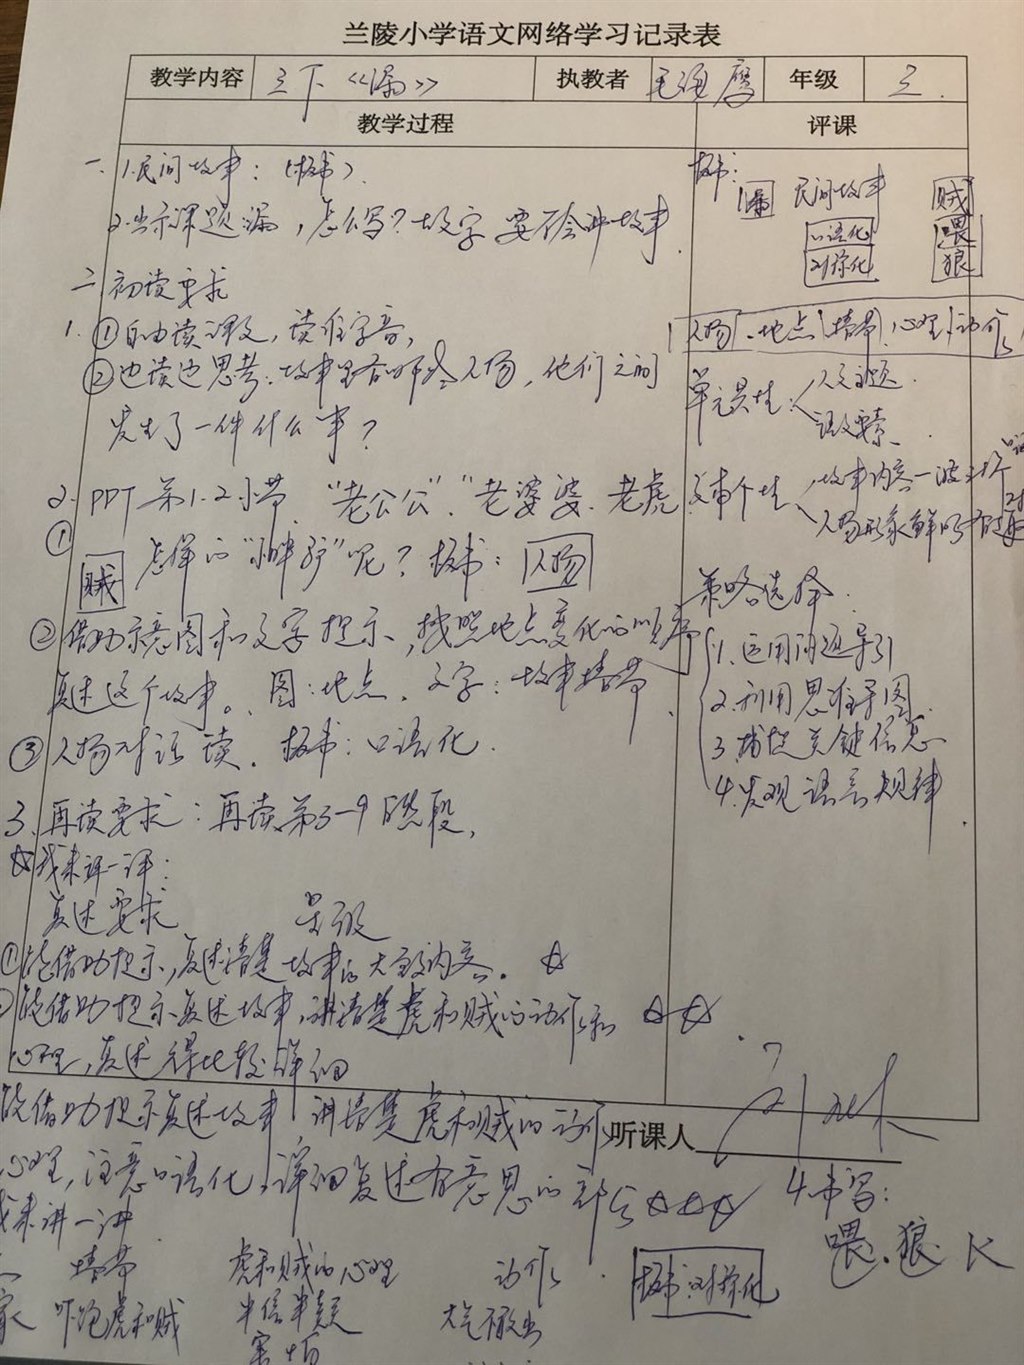 兰陵小学语文网络学习记录表
教学内容 三下《漏》 执教者 年级 三
教学过程 评课
一、1.民间故事：（板书）
2.出示课题漏，怎么写？故字 要 故事
二、初读要求
1.①自由读课文，读准字音，
②边读边思考：故事里有哪些人物，他们之间
发生了一件什么事？
2.PPT 第1.2小节 “老公公”、“老婆婆、老虎、
① 贼 怎样的“小胖驴”呢？板书：人物
②借助示意图和文字提示，按照地点变化的顺序
复述这个故事。图：地点、文字：故事情节
③人物对话读。板书：口语化.
3.再读要求：再读第3-9自然段，
☆我来评一评：
复述要求 星级
①能借助提示，复述清楚故事的大致内容。☆
②能借助提示复述故事，讲清楚虎和贼的动作和 ☆☆
心理，复述得比较详细
能借助提示复述故事，讲清楚虎和贼的动作
心理，注意口语化，详细复述有意思的部分☆☆☆
我来讲一讲
情节 虎和贼的心理 动作
家 吓跑虎和贼 半信半疑 大气不敢出
害怕
板书：对称化
板书：
漏 民间故事 贼
口语化 喂
对称化 狼
人物、地点 情节 心理 动作
单元共性： 人文主题
语文要素
文本个性 故事内容一波三折
人物形象鲜明有趣
策略选择
1.运用问题导引
2.利用思维导图
3.捕捉关键信息
4.发现语言规律
听课人
4.书写：
喂.狼